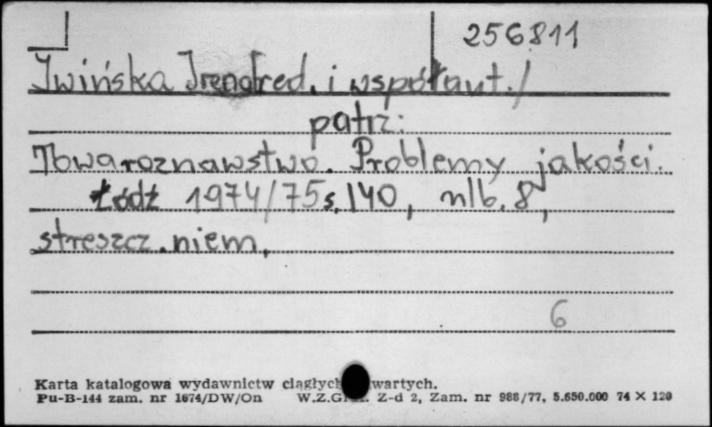 256811
Iwińska Irena/red. i współaut./
patrz:
Towaroznawstwo. Problemy jakości.
Łódź 1974/75 s. 140, nlb. 8,
streszcz. niem.
6
Karta katalogowa wydawnictw ciągłych wartych.
Pu-B-144 zam. nr 1674/DW/On W.Z.Gr Z-d 2, Zam. nr 988/77, 5.650.000 74 X 120